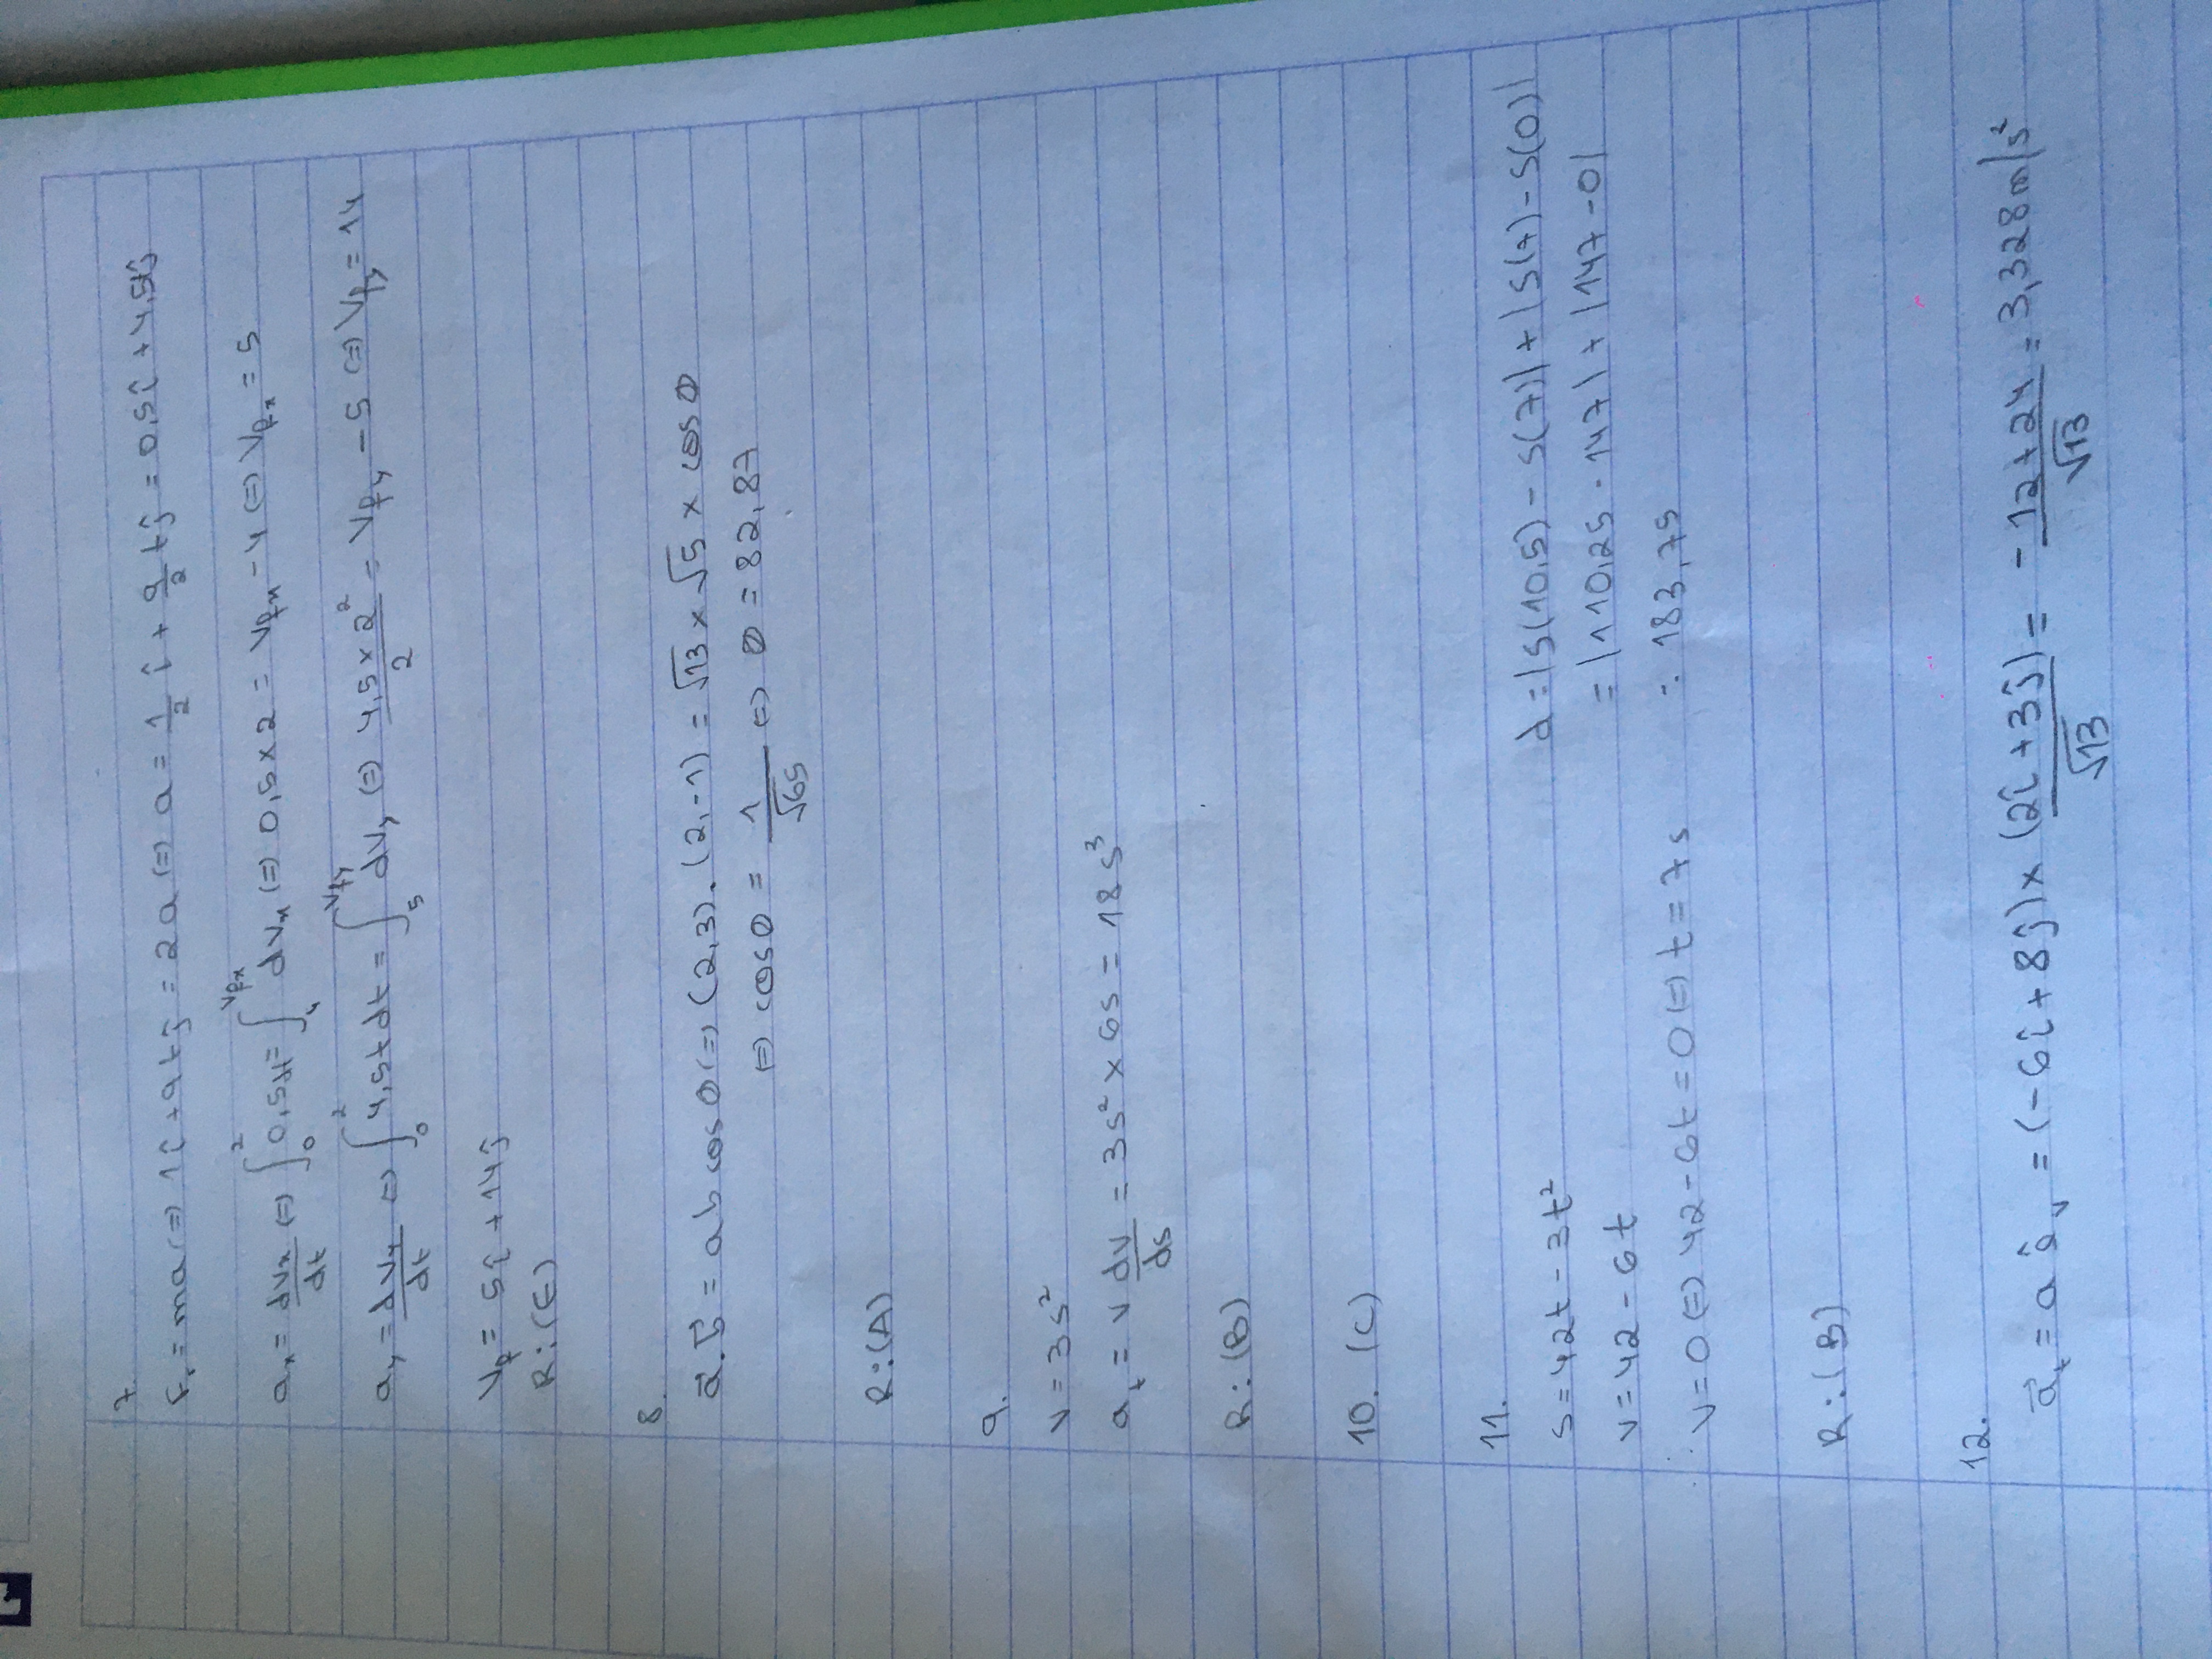 7.
Fᵣ = ma ⇔ 1î + 9tĵ = 2a ⇔ a = 1/2 î + 9/2 tĵ = 0,5î + 4,5tĵ
aₓ = dvₓ/dt ⇔ ∫₀² 0,5dt = ∫₄^(Vfₓ) dvₓ ⇔ 0,5 × 2 = Vfₓ - 4 ⇔ Vfₓ = 5
a_y = dv_y/dt ⇔ ∫₀² 4,5t dt = ∫₅^(Vf_y) dv_y ⇔ (4,5 × 2²)/2 = Vf_y - 5 ⇔ Vf_y = 14
V_f = 5î + 14ĵ
R: (E)
8.
a⃗ . b⃗ = a b cos θ ⇔ (2,3) . (2,-1) = √13 × √5 × cos θ
⇔ cos θ = 1/√65 ⇔ θ = 82,87
R: (A)
9.
v = 3s²
aₜ = v dv/ds = 3s² × 6s = 18s³
R: (B)
10. (C)
11.
s = 42t - 3t²
v = 42 - 6t
v = 0 ⇔ 42 - 6t = 0 ⇔ t = 7s
d = |s(10,5) - s(7)| + |s(7) - s(0)|
= |110,25 - 147| + |147 - 0|
= 183,75
R: (B)
12.
a⃗ₜ = a ê_v = (-6î + 8ĵ) × (2î + 3ĵ)/√13 = (-12 + 24)/√13 = 3,328 m/s²